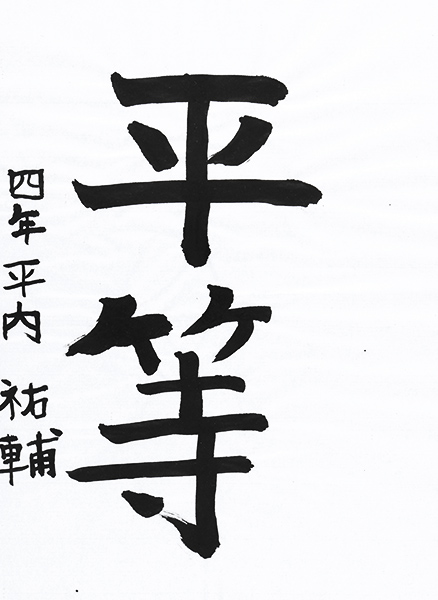 平等
四年 平内 祐輔